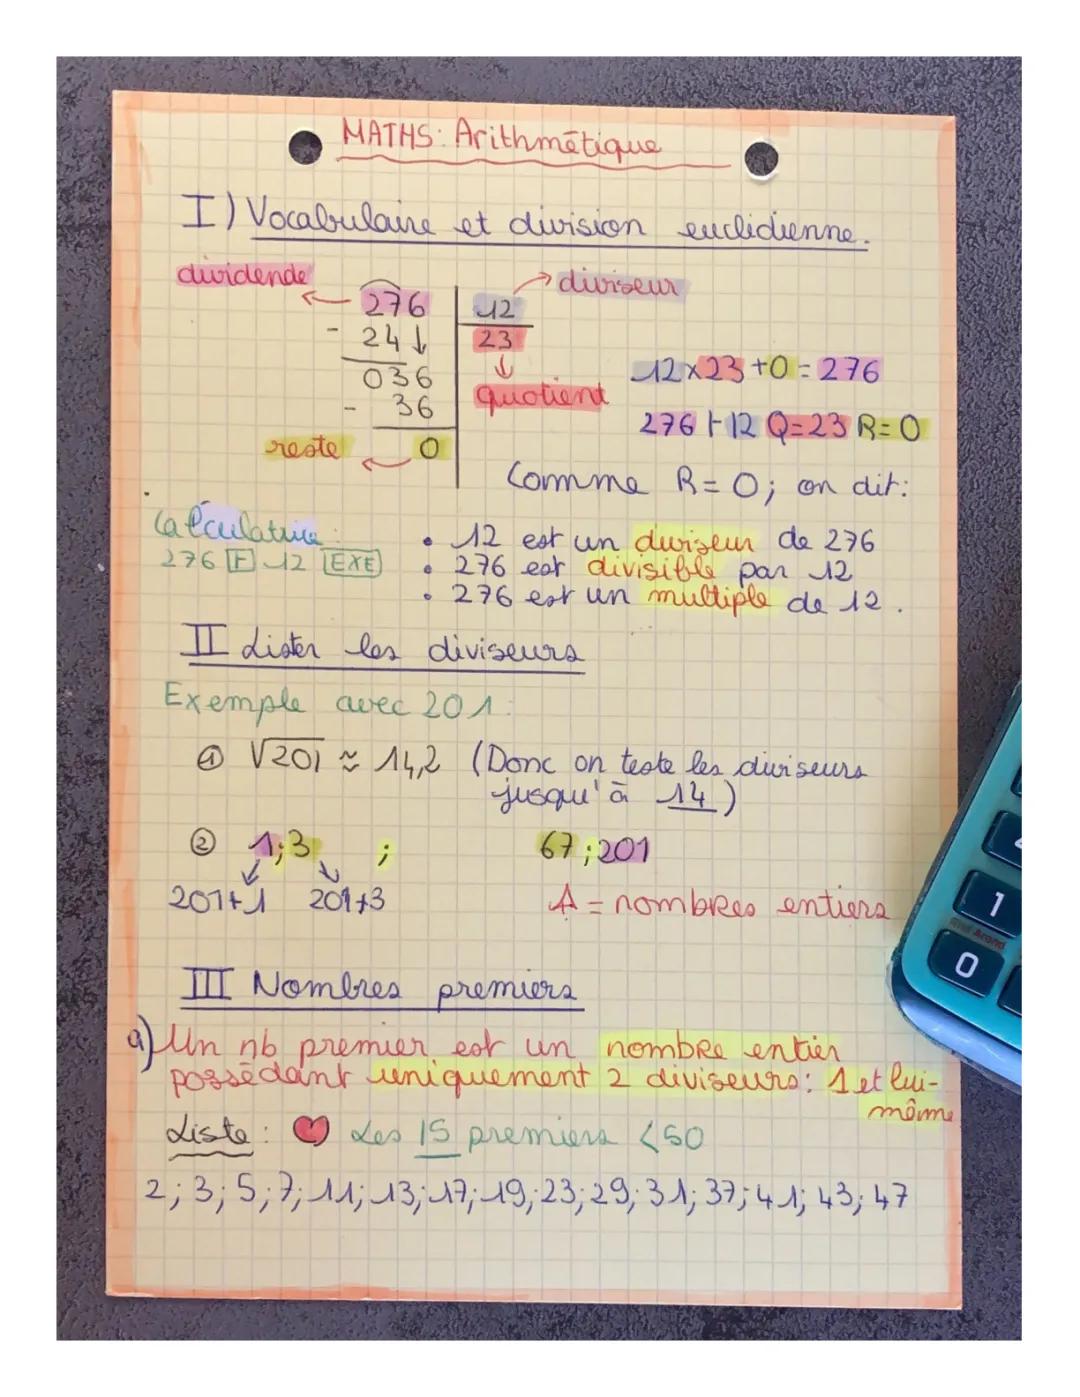 MATHS: Arithmétique
I) Vocabulaire et division euclidienne.
dividende
diviseur
276 12
- 24 23
036 quotient
- 36
reste 0
12×23+0=276
276 ⊢ 12 Q=23 R=0
Comme R=0; on dit:
Calculatrice:
276 ⊢ 12 EXE
• 12 est un diviseur de 276
• 276 est divisible par 12
• 276 est un multiple de 12.
II Lister les diviseurs
Exemple avec 201:
① √201 ≈ 14,2 (Donc on teste les diviseurs
jusqu'à 14)
② 1;3 ; 67;201
201÷1 201÷3
A = nombres entiers
III Nombres premiers
a) Un nb premier est un nombre entier
possédant uniquement 2 diviseurs: 1 et lui-
même
Liste: ♥ Les 15 premiers <50
2; 3; 5; 7; 11; 13; 17; 19; 23; 29; 31; 37; 41; 43; 47
1
0